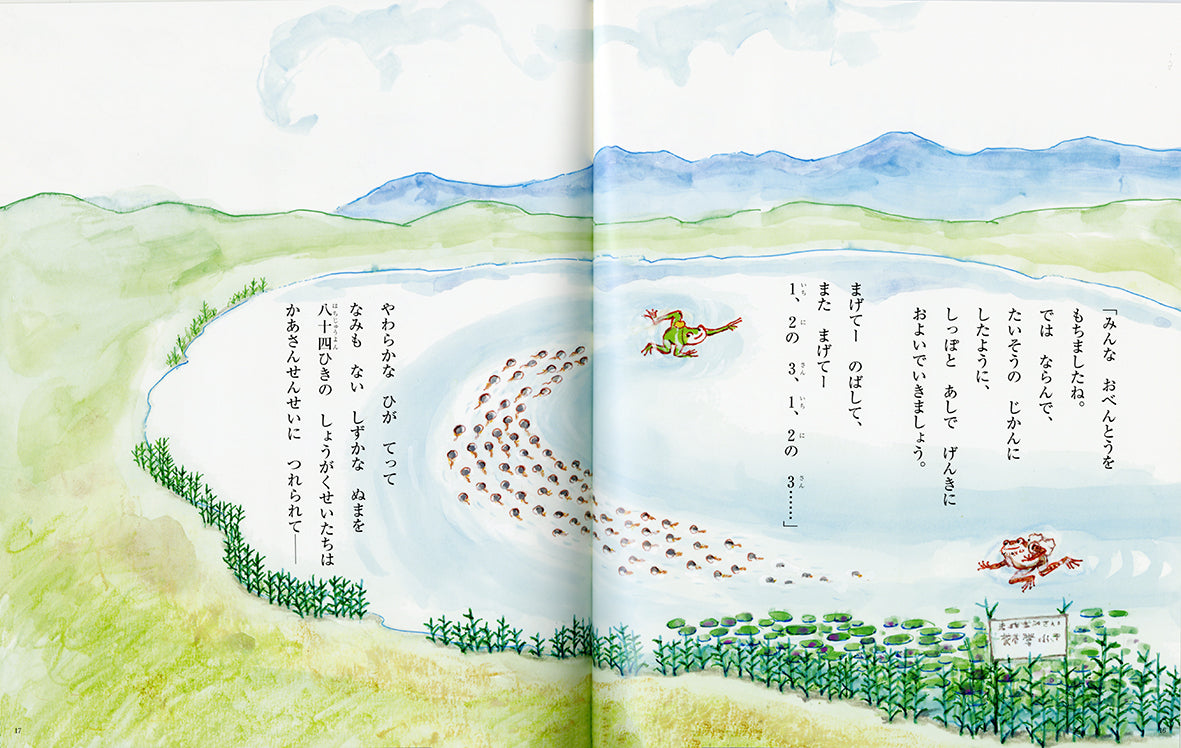 「みんな　おべんとうを
もちましたね。
では　ならんで、
たいそうの　じかんに
したように、
しっぽと　あしで　げんきに
およいでいきましょう。
まげてー　のばして、
また　まげてー
1、2の　3、1、2の　3……」
やわらかな　ひが　てって
なみも　ない　しずかな　ぬまを
八十四ひきの　しょうがくせいたちは
かあさんせんせいに　つれられて――
17